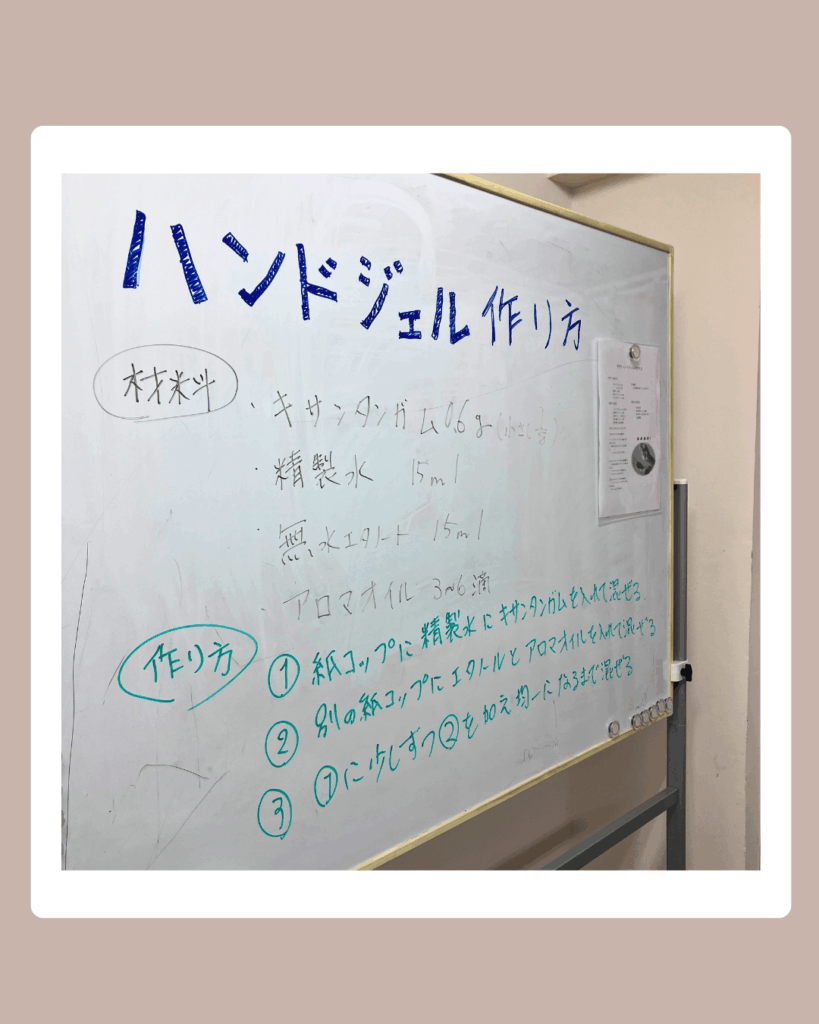 ハンドジェル作り方
材料
・キサンタンガム 0.6g
・精製水 15ml
・無水エタノール 15ml
・アロマオイル 3~6滴
作り方
① 紙コップに精製水にキサンタンガムを入れて混ぜる
② 別の紙コップにエタノールとアロマオイルを入れて混ぜる
③ ①に少しずつ②を加え均一になるまで混ぜる